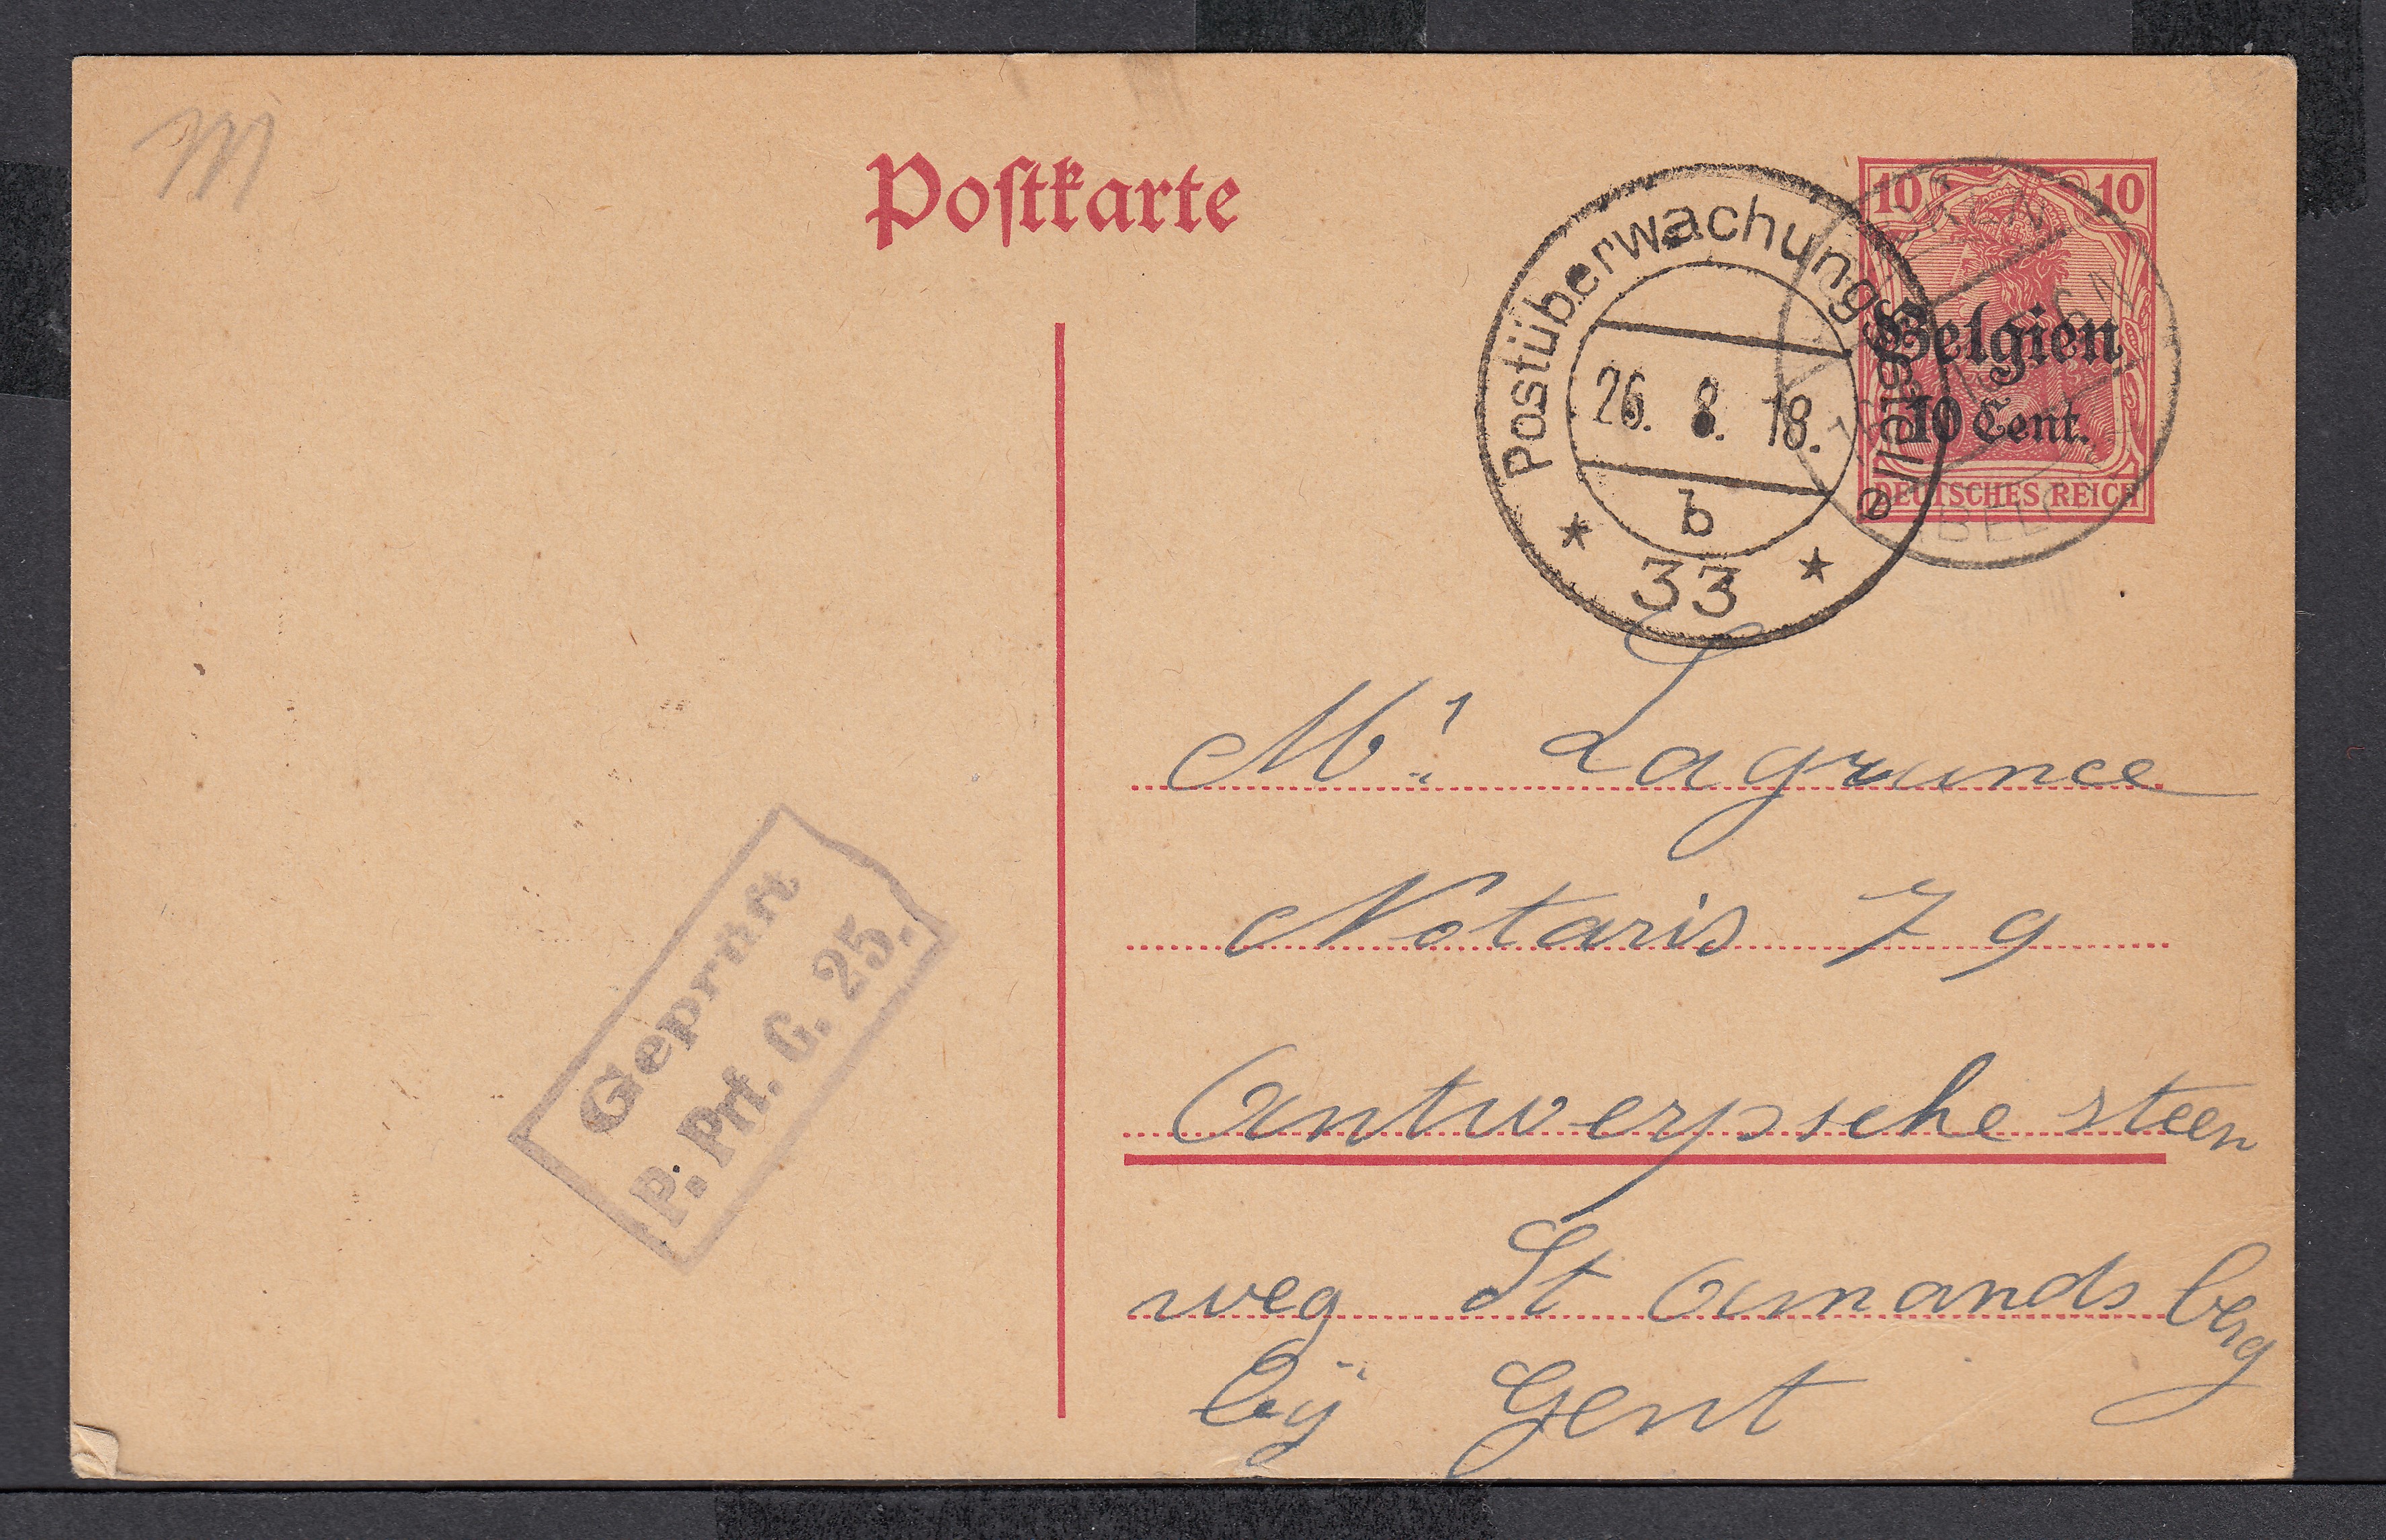 M
Postkarte
10 10
Belgien
10 Cent.
DEUTSCHES REICH
Postüberwachungsstelle
26. 8. 18.
b
* 33 *
BELG
Mr. Lagrance
Notaris 79
Antwerpsche steen
weg St Amandsberg
bÿ Gent
Geprüft
P. Prf. G. 25.